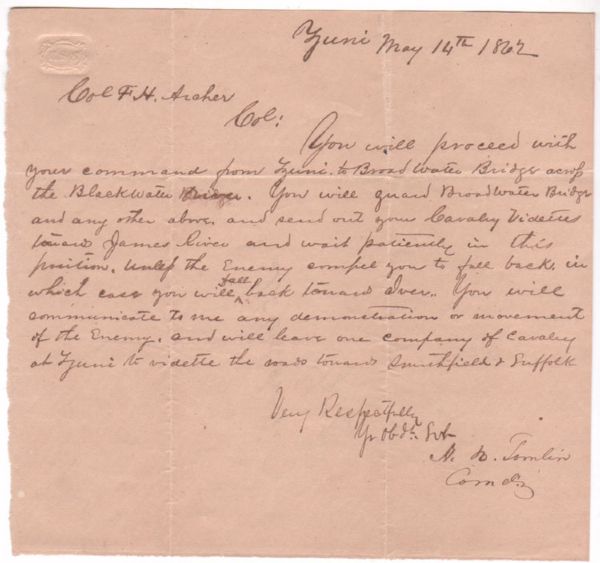 Zuni May 14th 1862
Col F. H. Archer
Col:
You will proceed with
your command from Zuni. to Broad Water Bridge across
the Blackwater. You will guard Broad Water Bridge
and any other above, and send out your Cavalry Videttes
toward James River and wait patiently in this
position. Unless the Enemy compel you to fall back, in
which case you will fall back toward Ivor. You will
communicate to me any demonstration or movement
of the Enemy, and will leave one company of Cavalry
at Zuni to vidette the roads toward Smithfield & Suffolk
Very Respectfully
Yr Obdt Svt
Tomlin
Comdg